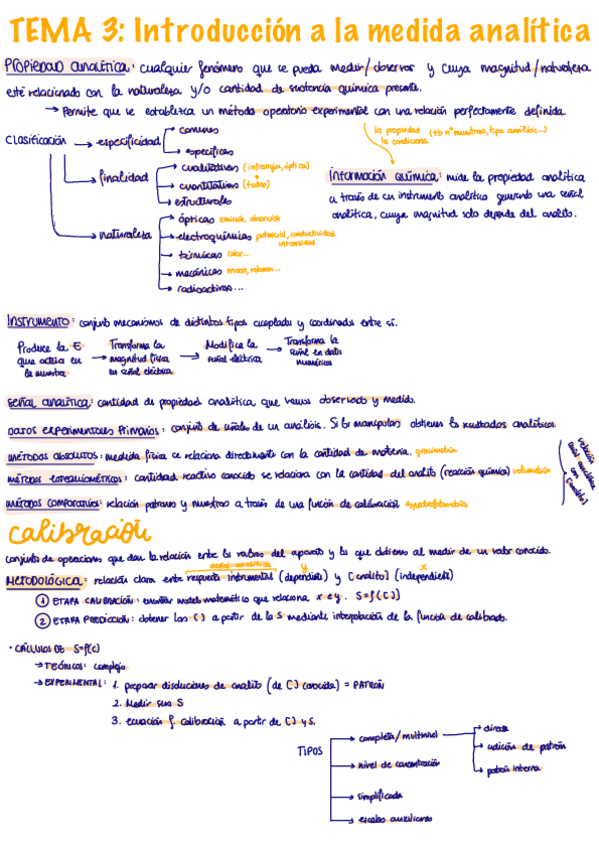 TEMA 3: Introducción a la medida analítica
PROPIEDAD analítica: cualquier fenómeno que se pueda medir/observar y cuya magnitud/naturaleza
esté relacionado con la naturaleza y/o cantidad de sustancia química presente.
→ Permite que se establezca un método operatorio experimental con una relación perfectamente definida.
la propiedad (tb nº muestras, tipo análisis...)
la condiciona
Clasificación → especificidad → comunes
→ específicas
→ finalidad → cualitativas (infrarrojos, óptica)
→ cuantitativas (todas)
→ estructurales
→ naturaleza → ópticas emisión, absorción
→ electroquímicas potencial, conductividad
intensidad
→ térmicas calor...
→ mecánicas masa, volumen...
→ radioactivas...
Información química: mide la propiedad analítica
a través de un instrumento analítico generando una señal
analítica, cuya magnitud solo depende del analito.
Instrumento: conjunto mecanismos de distintos tipos acoplados y coordinados entre sí.
Produce la E
que actúa en
la muestra
→ Transforma la
magnitud física
en señal eléctrica
→ Modifica la
señal eléctrica
→ Transforma la
señal en datos
numéricos
señal analítica: cantidad de propiedad analítica que vemos observado y medido.
Datos experimentales primarios: conjunto de señales de un análisis. Si los manipulas obtienes los resultados analíticos.
métodos absolutos: medida física se relaciona directamente con la cantidad de materia. gravimetría
métodos estequiométricos: cantidad reactivo conocido se relaciona con la cantidad del analito (reacción química) volumetrías
métodos comparativos: relación patrones y muestras a través de una función de calibración espectrofotometría
relación
señal analítica
con
[analito]
calibración
conjunto de operaciones que dan la relación entre los valores del aparato y los que obtienes al medir de un valor conocido.
señal analítica y x
Metodológica: relación clara entre respuesta instrumental (dependiente) y [analito] (independiente)
① ETAPA CALIBRACIÓN: encontrar modelo matemático que relaciona x e y. S=f([])
② ETAPA PREDICCIÓN: obtener las [] a partir de la S mediante interpolación de la función de calibrado.
• CÁLCULOS DE S=f(C)
→ TEÓRICOS: complejo
→ EXPERIMENTAL: 1. preparar disoluciones de analito (de [] conocida) = PATRÓN
2. Medir sus S
3. ecuación f. calibración a partir de [] y S.
TIPOS → completa/multinivel → directa
→ adición de patrón
→ patrón interno
→ nivel de concentración
→ simplificada
→ escalas auxiliares